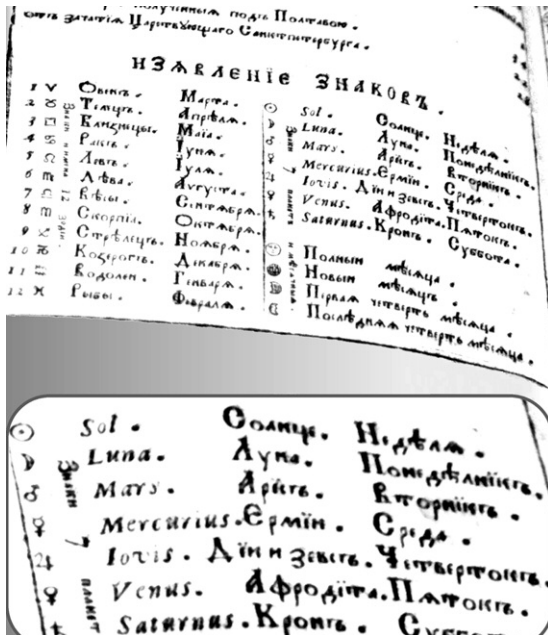 Полученным подъ Полтавою.
отъ зачатїѧ Царствующаго Санктпитербурга.
ИЗѦВЛЕНЇЕ ЗНАКОВЪ.
1 ♈ Овенъ. Марта.
2 ♉ Телецъ. Апрѣлѧ.
3 ♊ Близнецы. Маїа.
4 ♋ Ракъ. Їунѧ.
5 ♌ Левъ. Їулѧ.
6 ♍ Дѣва. Августа.
7 ♎ Вѣсы. Сентѧбрѧ.
8 ♏ Скорпїа. Октѧбрѧ.
9 ♐ Стрѣлецъ. Ноѧбрѧ.
10 ♑ Козерогъ. Декабрѧ.
11 ♒ Водолеи. Генварѧ.
12 ♓ Рыбы. Февралѧ.
Знаки 7 планетъ
☉ Sol. Солнце. Недѣлѧ.
☽ Luna. Луна. Понедѣлнїкъ.
♂ Mars. Арїсъ. Вторнїкъ.
☿ Mercurius. Ермїн. Среда.
♃ Iovis. Дїи и зевесъ. Четвертокъ.
♀ Venus. Афродїта. Пѧтокъ.
♄ Saturnus. Кронъ. Суббота.
Полныи мѣсѧца.
Новыи мѣсѧцъ.
Перваѧ четверть мѣсѧца.
Послѣднѧѧ четверть мѣсѧца.
Знаки 7 планетъ
☉ Sol. Солнце. Недѣлѧ.
☽ Luna. Луна. Понедѣлнїкъ.
♂ Mars. Арїсъ. Вторнїкъ.
☿ Mercurius. Ермїн. Среда.
♃ Iovis. Дїи и зевесъ. Четвертокъ.
♀ Venus. Афродїта. Пѧтокъ.
♄ Saturnus. Кронъ. Суббот